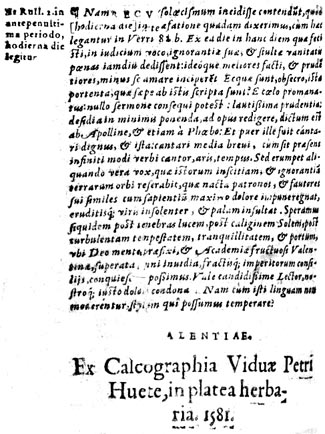 No Rull. 2. in
antepenulti-
ma periodo,
hodierna die
legitur
¶ Nunc ECV solœcismum incidisse contendūt, quòd
hodierna die in præfatione quadam dixerimus, cum hæc
legantur in Verri 82 b. Ex ea die in hanc diem quæ feci-
sti, in iudicium voco. ignorantiæ suæ, & stultæ vanitatis
pœnas iamdiu dedissent: ideóque meliores facti, & pruden-
tiores, minus se amare inciperēt. Ecquæ sunt, obsecro, ista
portenta, quæ sæpe ab istis scripta sunt? E cœlo promana-
tus: nullo sermone consequi potest: lautissima prudentia:
desidia in minimis ponenda, ad opus redigere, dictum est
ab Apolline, & etiam à Phœbo: Et puer ille fuit canta-
ri dignus, & ista: cantari media brevi, cum sit præsens
infiniti modi verbi cantor, aris, tempus. Sed erumpet ali-
quando vera vox, quæ istorum inscitiam, & ignorantiā
terrarum orbi reserabit, quæ nacta patronos, & fautores
sui similes cum sapientiū maximo dolore impunè regnat,
eruditisq́; viris insolenter, & palam insultat. Speramus
siquidem post tenebras lucem, post caliginem Solem, post
turbulentam tempestatem, tranquillitatem, & portum,
vbi Deo mente præfixi, & Academia fructuosi Valen-
tina, superata, omni inuidia, fractisq́; imperitorum consi-
lijs, conquies- possimus. Vale candidissime Lector, no-
stroq́; iusto dolori condona. Nam cum isti linguam non
moderentur, stylum qui possumus temperare?
ALENTIAE.
Ex Calcographia Viduæ Petri
Huete, in platea herba-
ria. 1581.